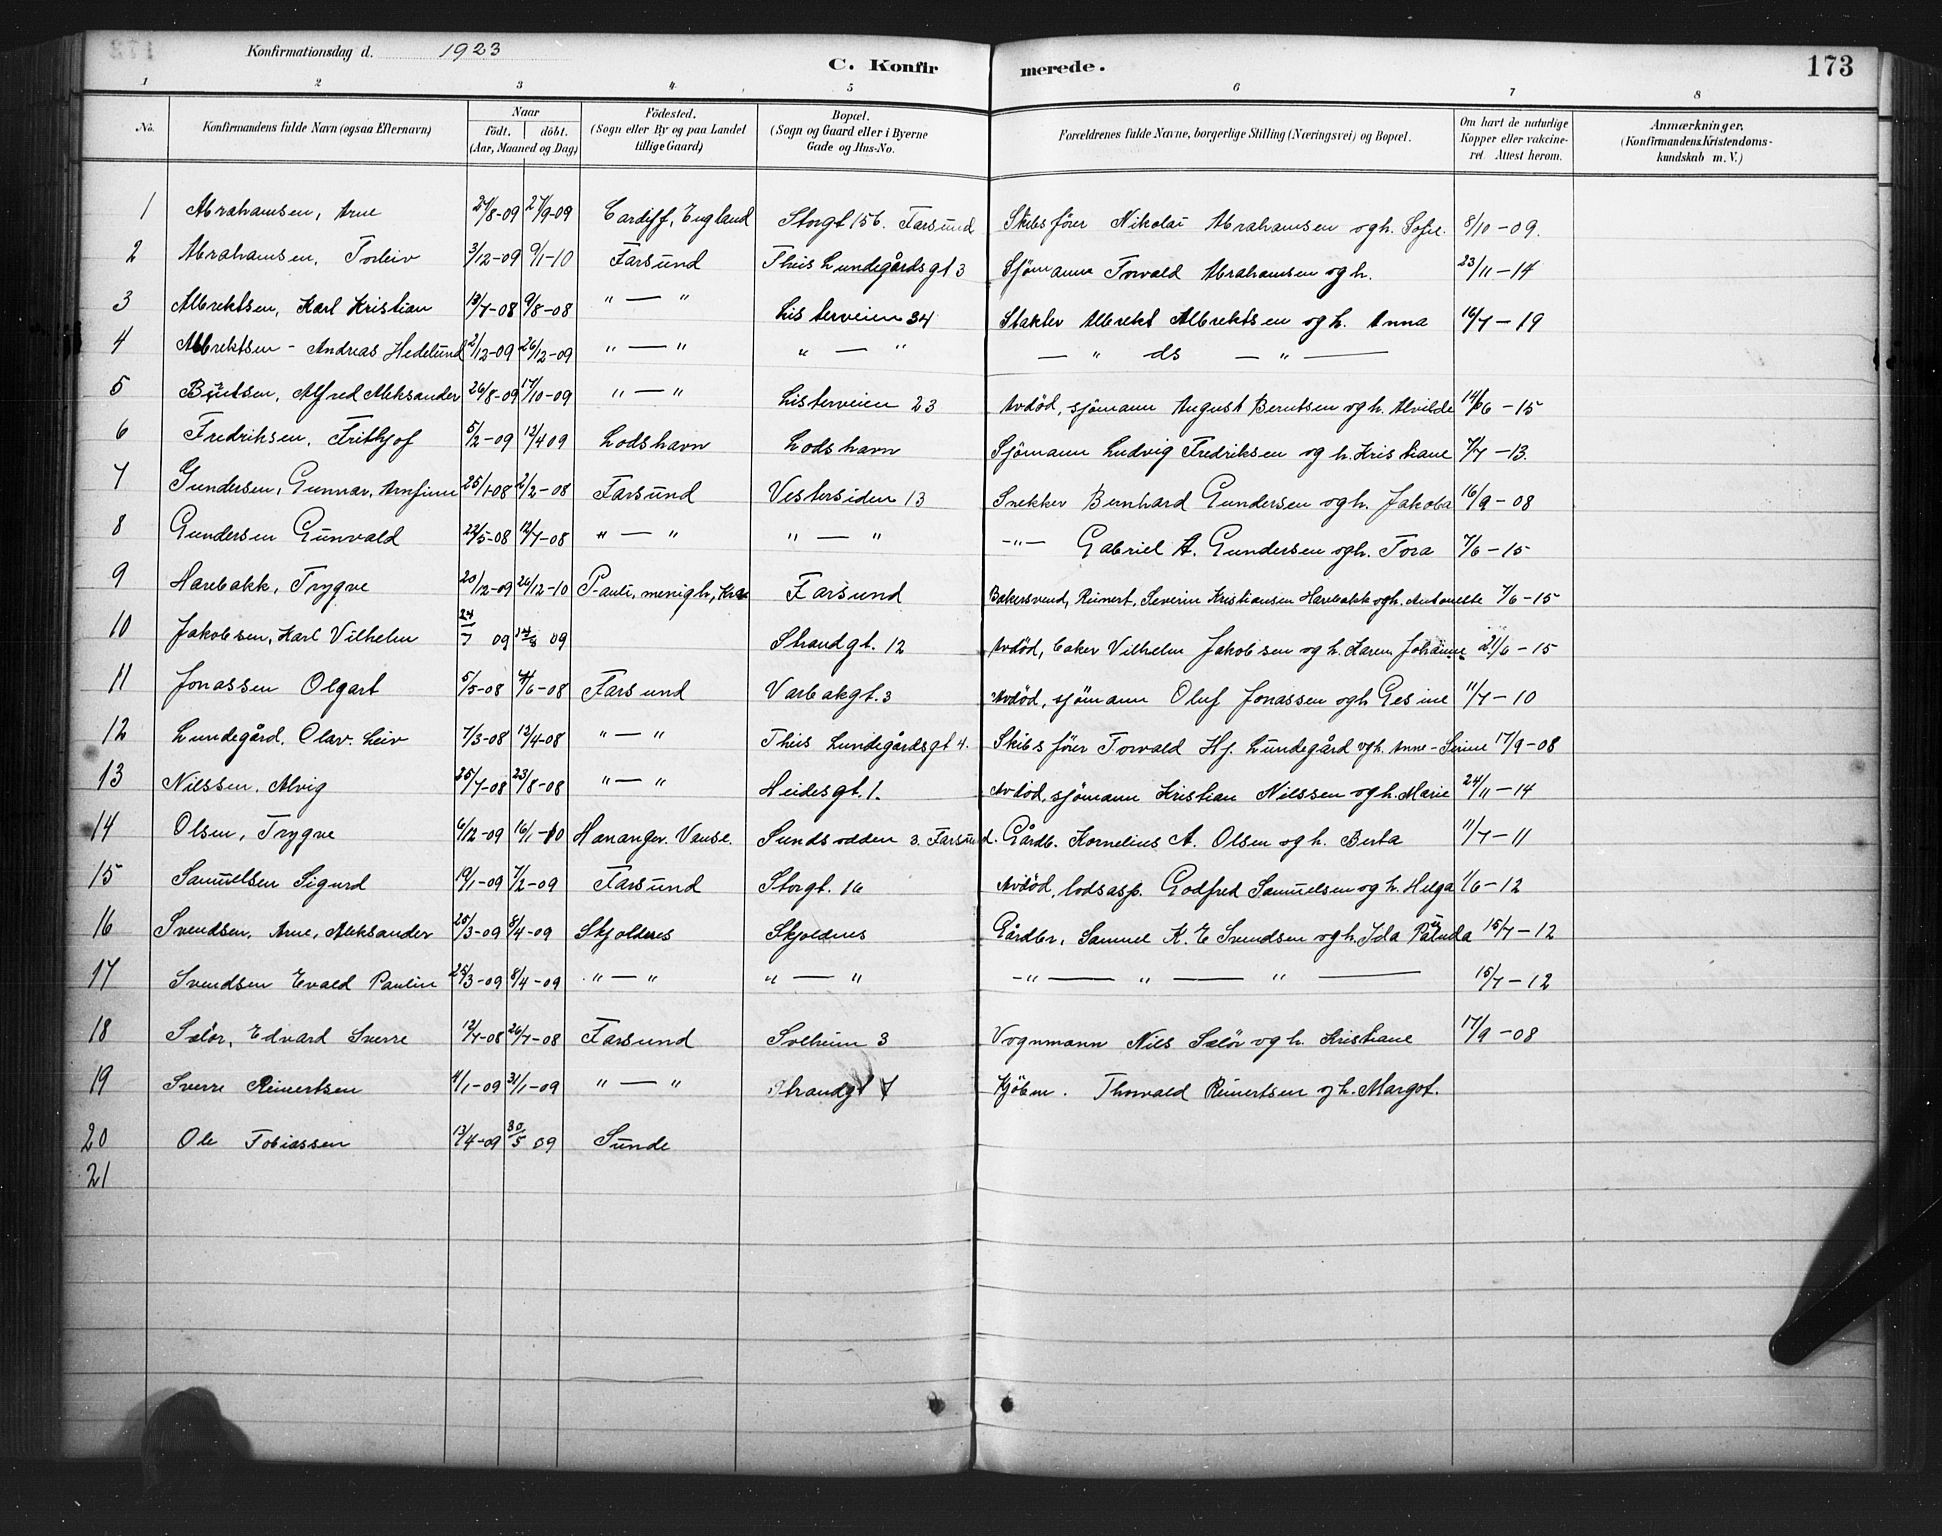 Konfirmationsdag d. 1923
C. Konfirmerede.
173
1 2 3 4 5 6 7 8
No.
Konfirmandens fulde Navn (ogsaa Efternavn)
Naar
födt. döbt.
(Aar, Maaned og Dag)
Födested.
(Sogn eller By og paa Landet
tillige Gaard)
Bopæl.
(Sogn og Gaard eller i Byerne
Gade og Hus-No.
Forældrenes fulde Navne, borgerlige Stilling (Næringsvei) og Bopæl.
Om havt de naturlige
Kopper eller vakcine-
ret. Attest herom.
Anmærkninger.
(Konfirmandens Kristendoms-
kundskab m. V.)
1 Abrahamsen, Arne /8-09 27/9-09 Cardiff, England Storgt 156. Farsund Skibsförer Nikolai Abrahamsen og h. Sofie. 8/10-09.
2 Abrahamsen, Torleiv 3/12-09 9/1-10 Farsund Theis Lundegårdsgt 3 Sjömann Torvald Abrahamsen og h. 23/11-14
3 Albrektsen, Karl Kristian 13/7-08 9/8-08 " — " Listerveien 34 Stakter Albrekt Albrektsen og h. Anna 16/7-19
4 Albrektsen - Andreas Hedelund 2/12-09 26/12-09 " — " " — " — " ds — " —
5 Berntsen, Alfred Aleksander 26/8-09 17/10-09 " — " Listerveien 23 Avdöd, sjömann August Berntsen og h. Alvilde 14/6-15
6 Fredriksen, Frithjof 5/2-09 13/4 09 Lodshavn Lodshavn Sjömann Ludvig Fredriksen og h. Kristiane 7/7-13.
7 Gundersen, Gunnar, Arnfinn 25/1-08 2/2-08 Farsund Vestersiden 13 Snekker Bernhard Gundersen og h. Jakoba 16/9-08
8 Gundersen Gunvald 22/5-08 12/7-08 " — " " — " -"- Gabriel A. Gundersen og h. Tora 7/6-15
9 Harebakk, Trygve 20/12-09 26/12-10 Pauli, menigh, Farsund Bakersvend, Reinert, Severin Kristiansen Harebakk og h. Antonette 7/6-15
10 Jakobsen, Karl Vilhelm 24/7 09 09 Strandgt. 12 Avdöd, baker Vilhelm Jakobsen og h. Karen Johanne 21/6-15
11 Jonassen Olgart 5/5-08 /6-08 Farsund Varbakgt. 3 Avdöd, sjömann Oluf Jonassen og h Gesine 11/7-10
12 Lundegård. Olav. Leiv 7/3-08 12/4-08 " — " Theis Lundegårdsgt 4. Skibsförer Torvald Hj. Lundegård og h. Anne-Serine 17/9-08
13 Nilssen. Alvig 25/7-08 23/8-08 " — " Heidesgt. 1. Avdöd, sjömann Kristian Nilssen og h. Marie 24/11-14
14 Olsen, Trygve 6/12-09 16/1-10 Hananger. Vanse. Sundsodden 3. Farsund. Gårdb. Kornelius A. Olsen og h. Berta 11/7-11
15 Samuelsen Sigurd 19/1-09 7/2-09 Farsund Storgt. 16 Avdöd, lodsasp. Godfred Samuelsen og h. Helga 1/6-12
16 Svendsen. Arne, Aleksander 25/3-09 8/4-09 Skjoldnes Skjoldnes Gårdbr, Samuel K. E Svendsen og h. Ida Paulida 15/7-12
17 Svendsen Evald Paulin 25/3-09 8/4-09 " — " " — " -" — " — " — 15/7-12
18 Selör, Edvard Sverre 12/7-08 26/7-08 Farsund Solheim 3 Vognmann Nils Selör og h. Kristiane 17/9-08
19 Sverre Reinertsen 4/1-09 31/1-09 " — " Strandgt 7 Kjöbm. Thorvald Reinertsen og h. Margot.
20 Ole Tobiassen 13/4-09 30/5 09 Sunde
21